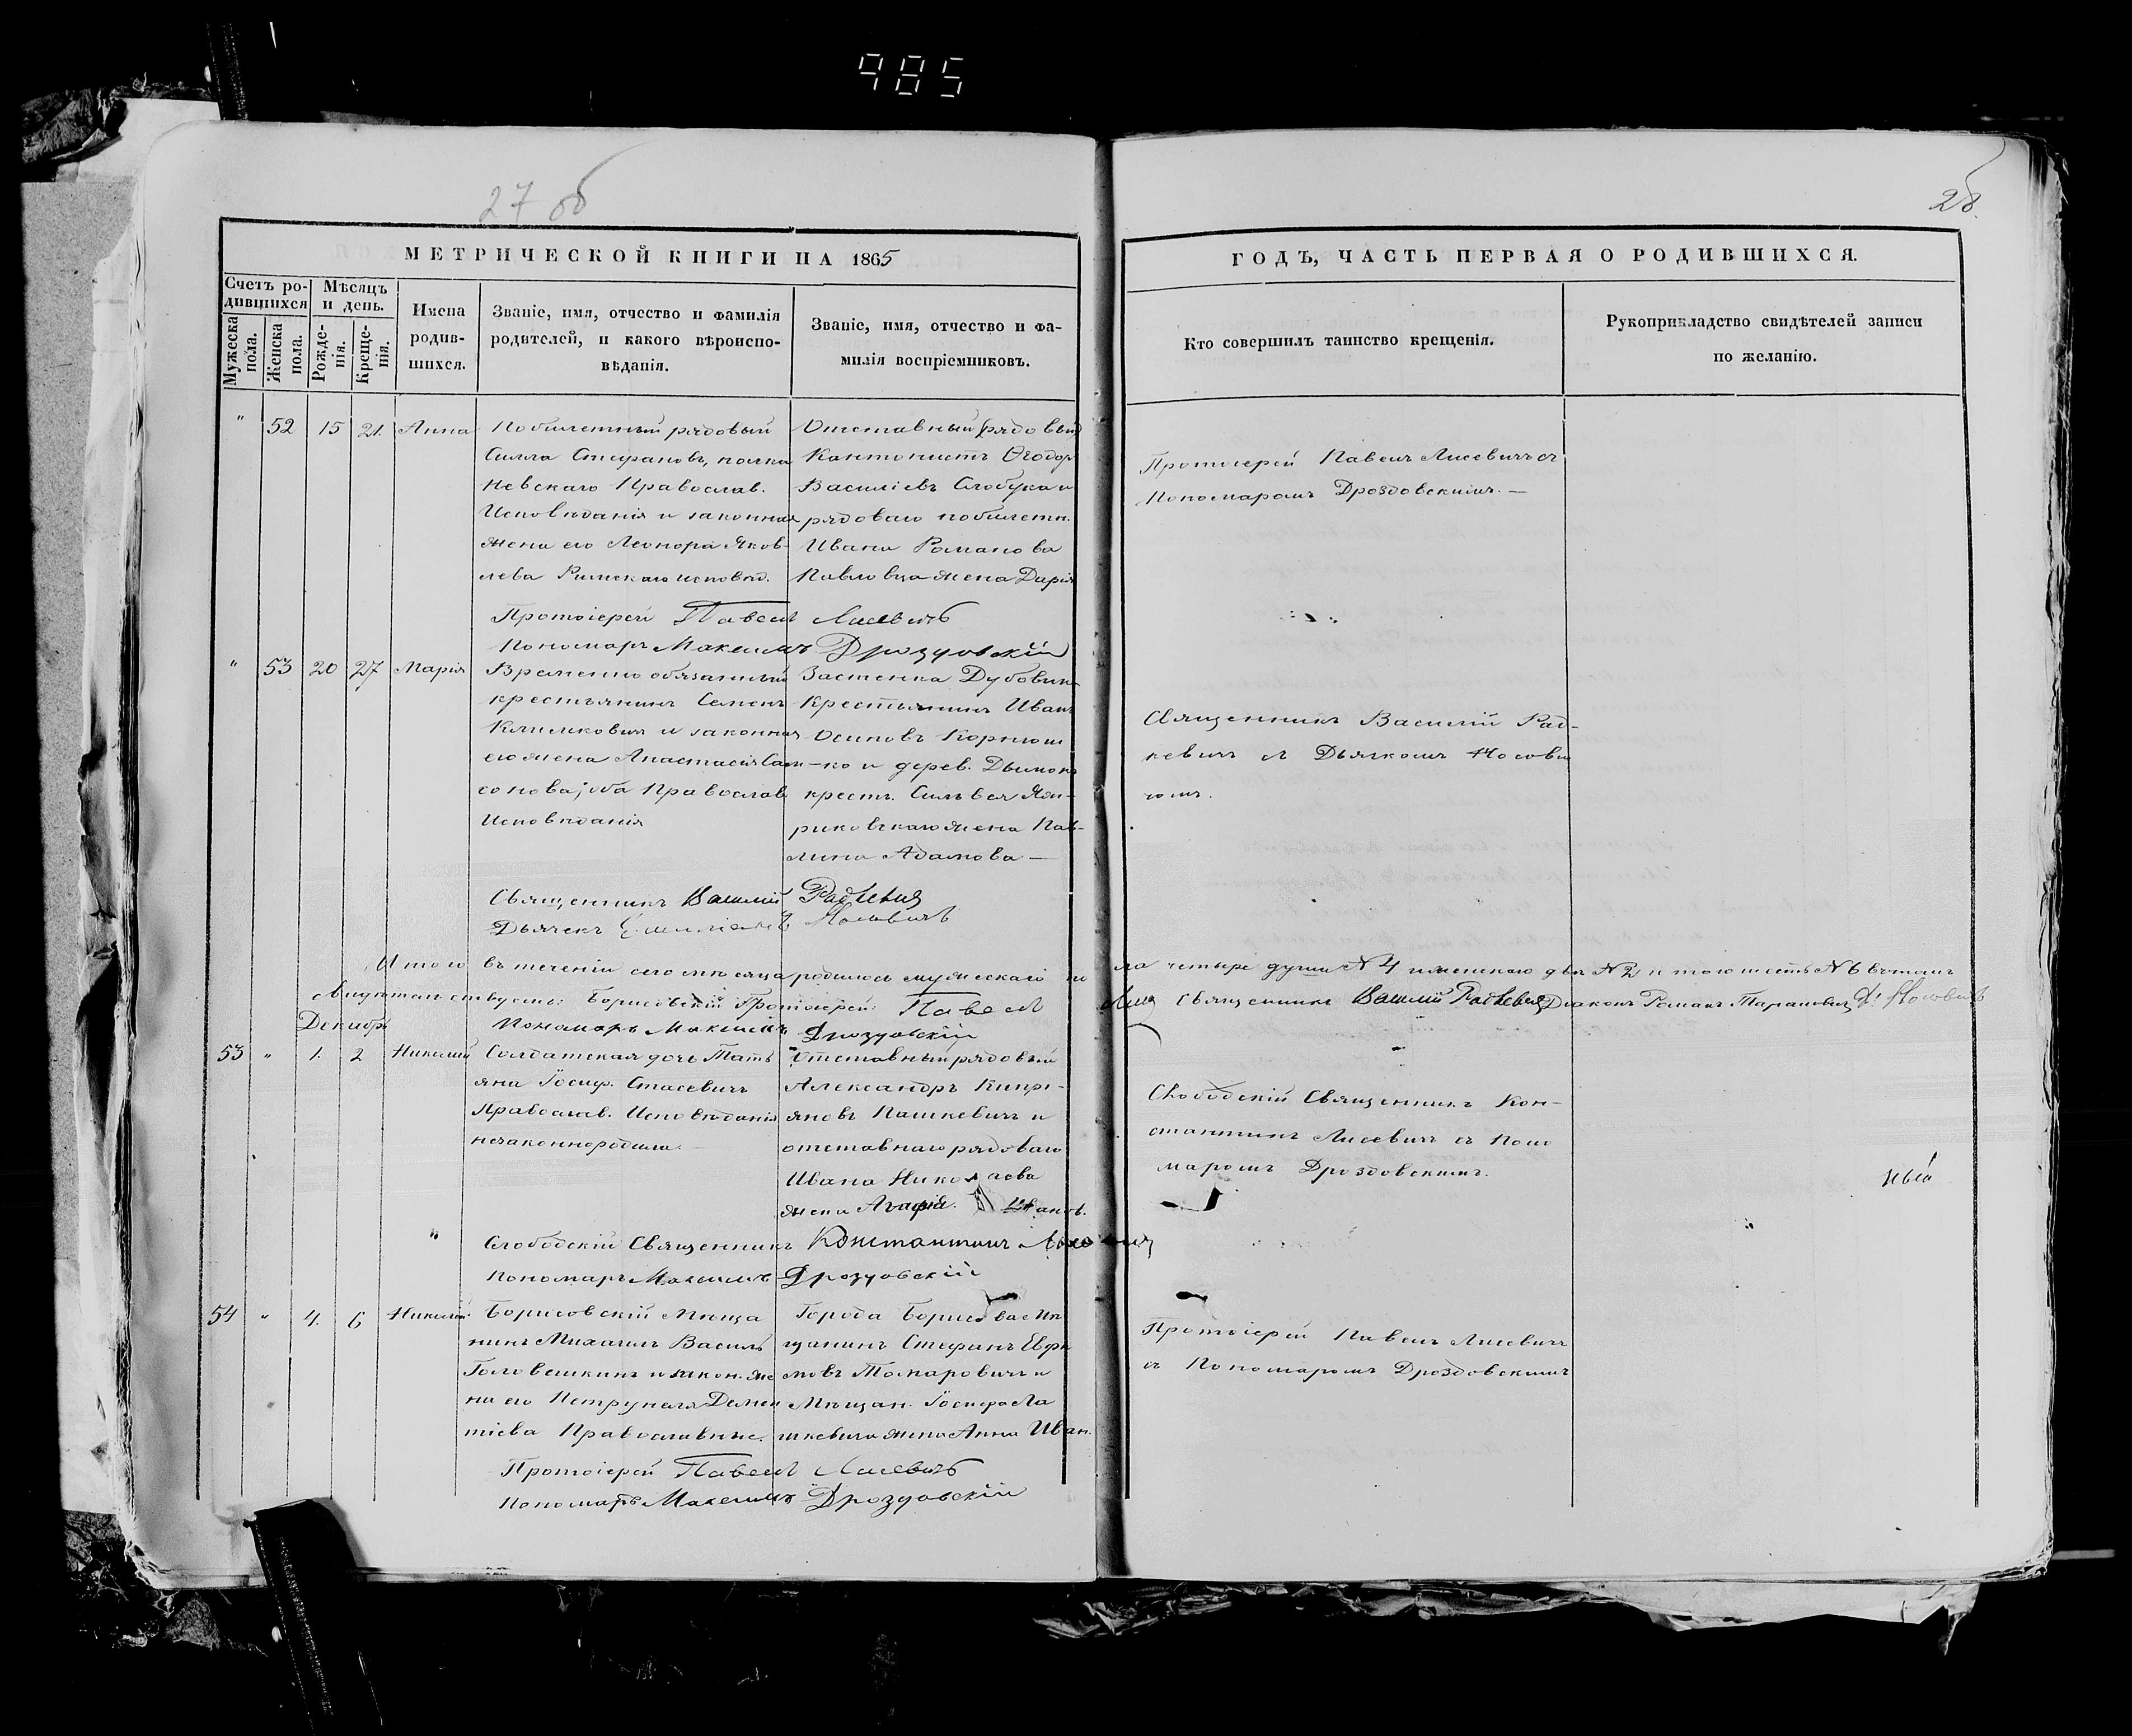 985
27 об
28.
МЕТРИЧЕСКОЙ КНИГИ НА 1865
ГОДЪ, ЧАСТЬ ПЕРВАЯ О РОДИВШИХСЯ.
Счетъ родившихся
Мужеска пола.
Женска пола.
Мѣсяцъ и день.
Рожденія.
Крещенія.
Имена родившихся.
Званіе, имя, отчество и фамилія
родителей, и какого вѣроиспо-
вѣданія.
Званіе, имя, отчество и фа-
милія воспріемниковъ.
Кто совершилъ таинство крещенія.
Рукоприкладство свидѣтелей записи
по желанію.
" 52 15 21. Анна
Побилетный рядовый
Силла Стефановъ, полка
Невскаго Православ.
Исповѣданія и законная
жена его Леонора Яков-
лева Римскаго исповѣд.
Отставный рядовый
Кантонистъ Ѳеодор
Василіевъ Слобука и
рядоваго побилетн.
Ивана Романова
Павловца жена Дарія
Протоіерей Павелъ Лисевичъ съ
Пономаромъ Дроздовскимъ.—
Протоіерей Павелъ Лисевичъ
Пономарь Максимъ Дроздовскій
" 53 20 27 Марія
Временно обязанный
крестьянинъ Семенъ
Климковичъ и законная
его жена Анастасія Сам-
сонова, оба Православ.
Исповѣданія
Застенка Дубовик
Крестьянинъ Иванъ
Осиповъ Корнюш
-ко и дерев. Дымок
крест. Сильвея Ям-
риковскаго жена Пав-
лина Адамова—
Священникъ Василій Рад-
кевичъ съ Дьячкомъ Носови
чомъ.
Священникъ Василій Радкевичъ
Дьячекъ Носовичъ
Итого въ теченіи сего мѣсяца родилось мужескаго по
ла четыре души № 4 и женскаго двѣ № 2 и того шесть № 6
Свидѣтельствуютъ: Борисовскій Протоіерей Павелъ
Лис Священникъ Василій Радкевичъ Діаконъ Романъ Тарановичъ Д. Носовичъ
Пономарь Максимъ Дроздовскій
Декабрь
53 " 1. 2 Николай
Солдатская дочь Тать
яна Іосиф. Стасевичъ
Православ. Исповѣданія
незаконнородила.
Отставный рядовый
Александръ Кипрі-
яновъ Пашкевичъ и
отставнаго рядоваго
Ивана Николаева
жена Агафія Иванов.
Слободскій Священникъ Кон-
стантинъ Лисевичъ съ Поно
маромъ Дроздовскимъ.
" Слободскій Священникъ Константинъ Лисевичъ
Пономарь Максимъ Дроздовскій
54 " 4. 6 Николай
Борисовскій Мѣща
нинъ Михаилъ Василь
Головешкинъ и закон. же
на его Петрунеля Демен
тіева Православные.
Города Борисова Мѣ
щанинъ Стефанъ Евфи
мовъ Токаровичъ и
Мѣщан. Іосифа Ла
шкевича жена Анна Иван.
Протоіерей Павелъ Лисевичъ
съ Пономаромъ Дроздовскимъ
Протоіерей Павелъ Лисевичъ
Пономарь Максимъ Дроздовскій